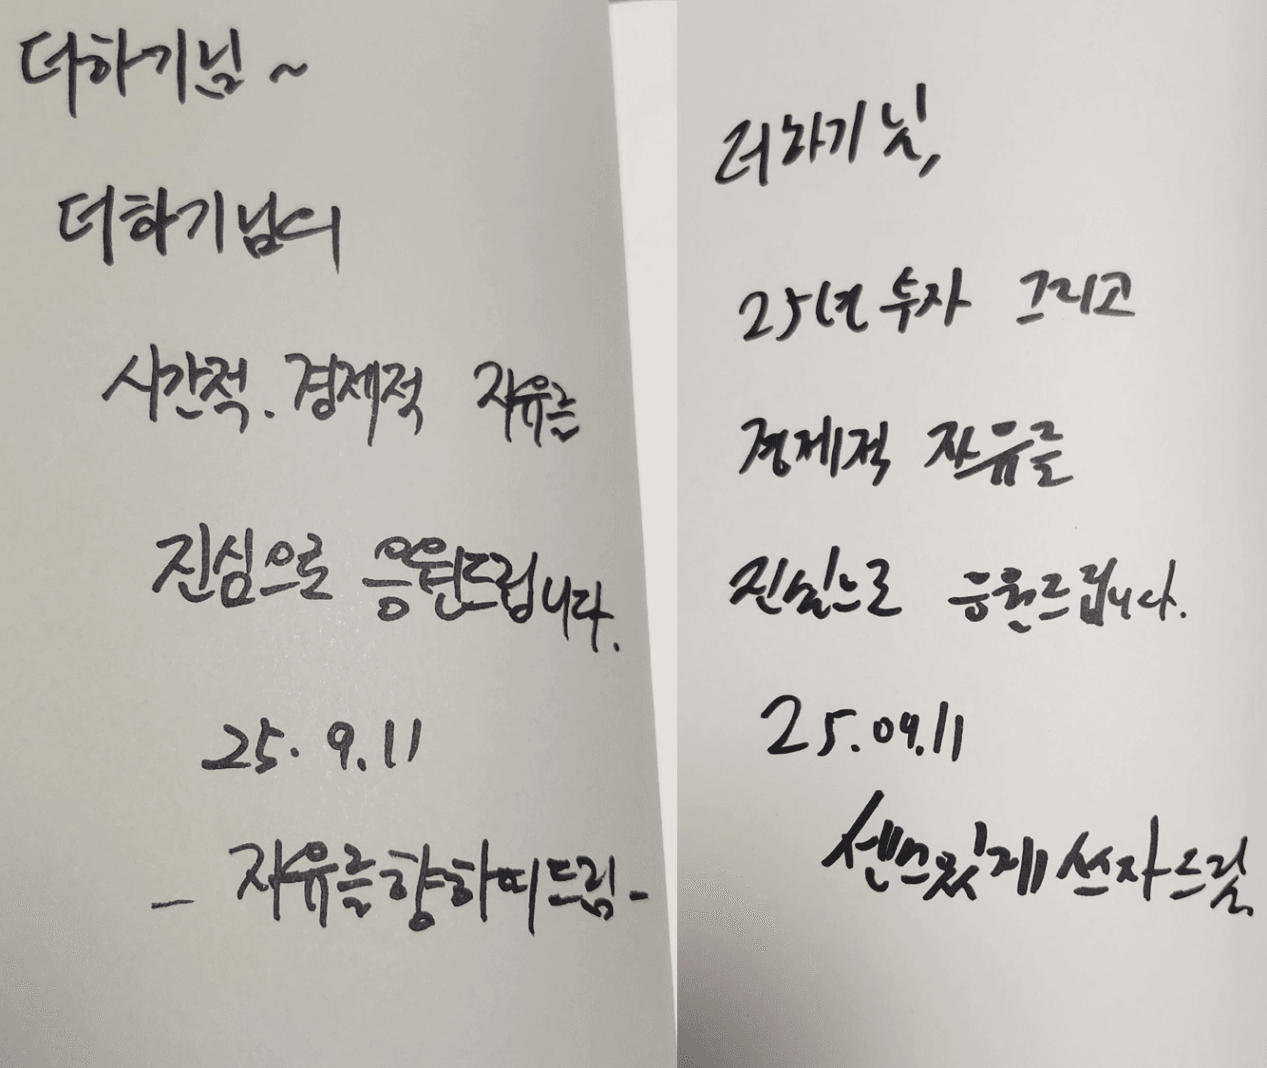 더하기님 ~
더하기님의
시간적. 경제적 자유를
진심으로 응원드립니다.
25. 9. 11
- 자유를향하며드림 -
더하기님,
25년 투자 그리고
경제적 자유를
진심으로 응원드립니다.
25. 09. 11
센스있게쓰자드림